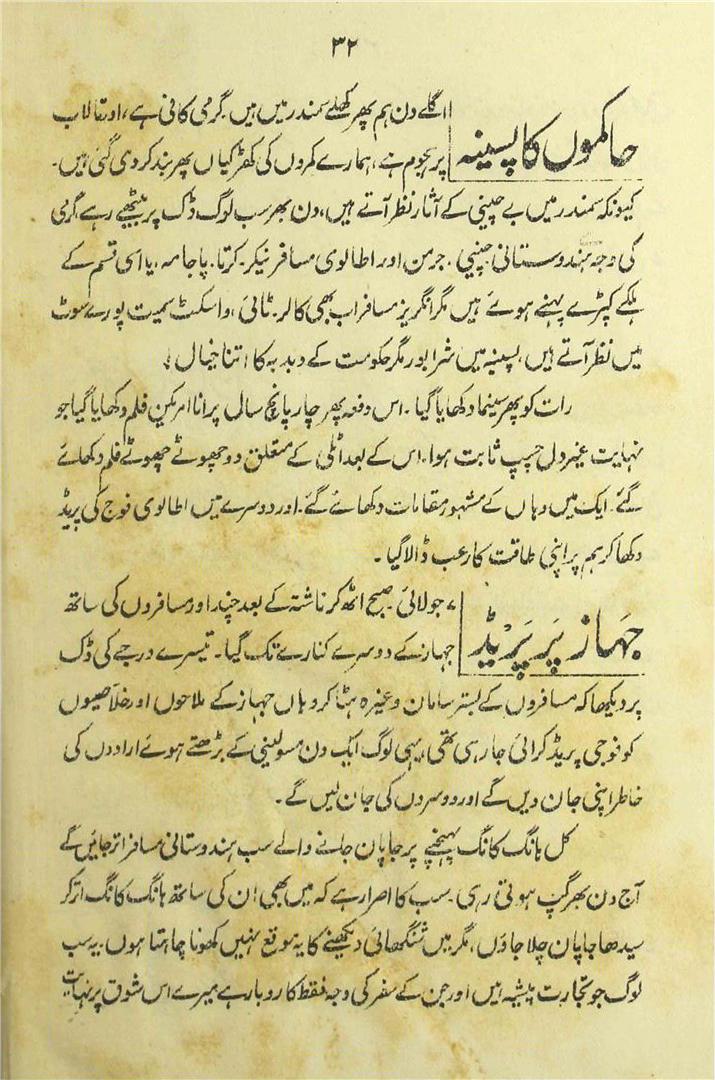 ۳۲
حاکموں کا پسینہ
اگلے دن ہم پھر کھلے سمندر میں ہیں۔ گرمی کافی ہے، اور تالاب
پر ہجوم ہے، ہمارے کمروں کی کھڑکیاں پھر بند کر دی گئی ہیں۔
کیونکہ سمندر میں بے چینی کے آثار نظر آتے ہیں، دن بھر سب لوگ ڈک پر بیٹھے رہے، گرمی
کی وجہ ہندوستانی، چینی، جرمن اور اطالوی مسافر نیکر۔ کرتا۔ پاجامہ، یا اسی قسم کے
ہلکے کپڑے پہنے ہوئے ہیں مگر انگریز مسافر اب بھی کالر۔ ٹائی، واسکٹ سمیت پورے سوٹ
میں نظر آتے ہیں، پسینہ میں شرابور مگر حکومت کے دبدبہ کا اتنا خیال!
رات کو پھر سینما دکھایا گیا۔ اس دفعہ پھر چار پانچ سال پرانا امریکن فلم دکھایا گیا جو
نہایت غیر دل چسپ ثابت ہوا۔ اس کے بعد اٹلی کے متعلق دو چھوٹے چھوٹے فلم دکھلائے
گئے۔ ایک میں وہاں کے مشہور مقامات دکھائے گئے۔ اور دوسرے میں اطالوی فوج کی پریڈ
دکھا کر ہم پر اپنی طاقت کا رعب ڈالا گیا۔
جہاز پر پریڈ
۷ جولائی۔ صبح اٹھ کر ناشتہ کے بعد چند اور مسافروں کی ساتھ
جہاز کے دوسرے کنارے تک گیا۔ تیسرے درجے کی ڈک
پر دیکھا کہ مسافروں کے بستر سامان وغیرہ ہٹا کر وہاں جہاز کے ملاحوں اور خلاصیوں
کو فوجی پریڈ کرائی جا رہی تھی، یہی لوگ ایک دن مسولینی کے بڑھتے ہوئے ارادوں کی
خاطر اپنی جان دیں گے اور دوسروں کی جان لیں گے۔
کل ہانگ کانگ پہنچنے پر جاپان جانے والے سب ہندوستانی مسافر اتر جائیں گے
آج دن بھر گپ ہوتی رہی۔ سب کا اصرار ہے کہ میں بھی ان کی ساتھ ہانگ کانگ اتر کر
سیدھا جاپان چلا جاؤں، مگر میں شنگھائی دیکھنے کا یہ موقع نہیں کھونا چاہتا ہوں۔ یہ سب
لوگ جو تجارت پیشہ ہیں اور جن کے سفر کی وجہ فقط کاروبار ہے میرے اس شوق پر نہایت